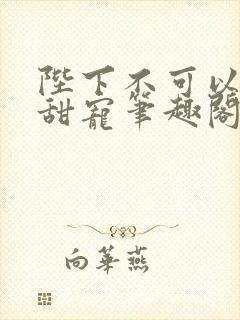 陛下不可以
甜寵筆趣閣
向華燕